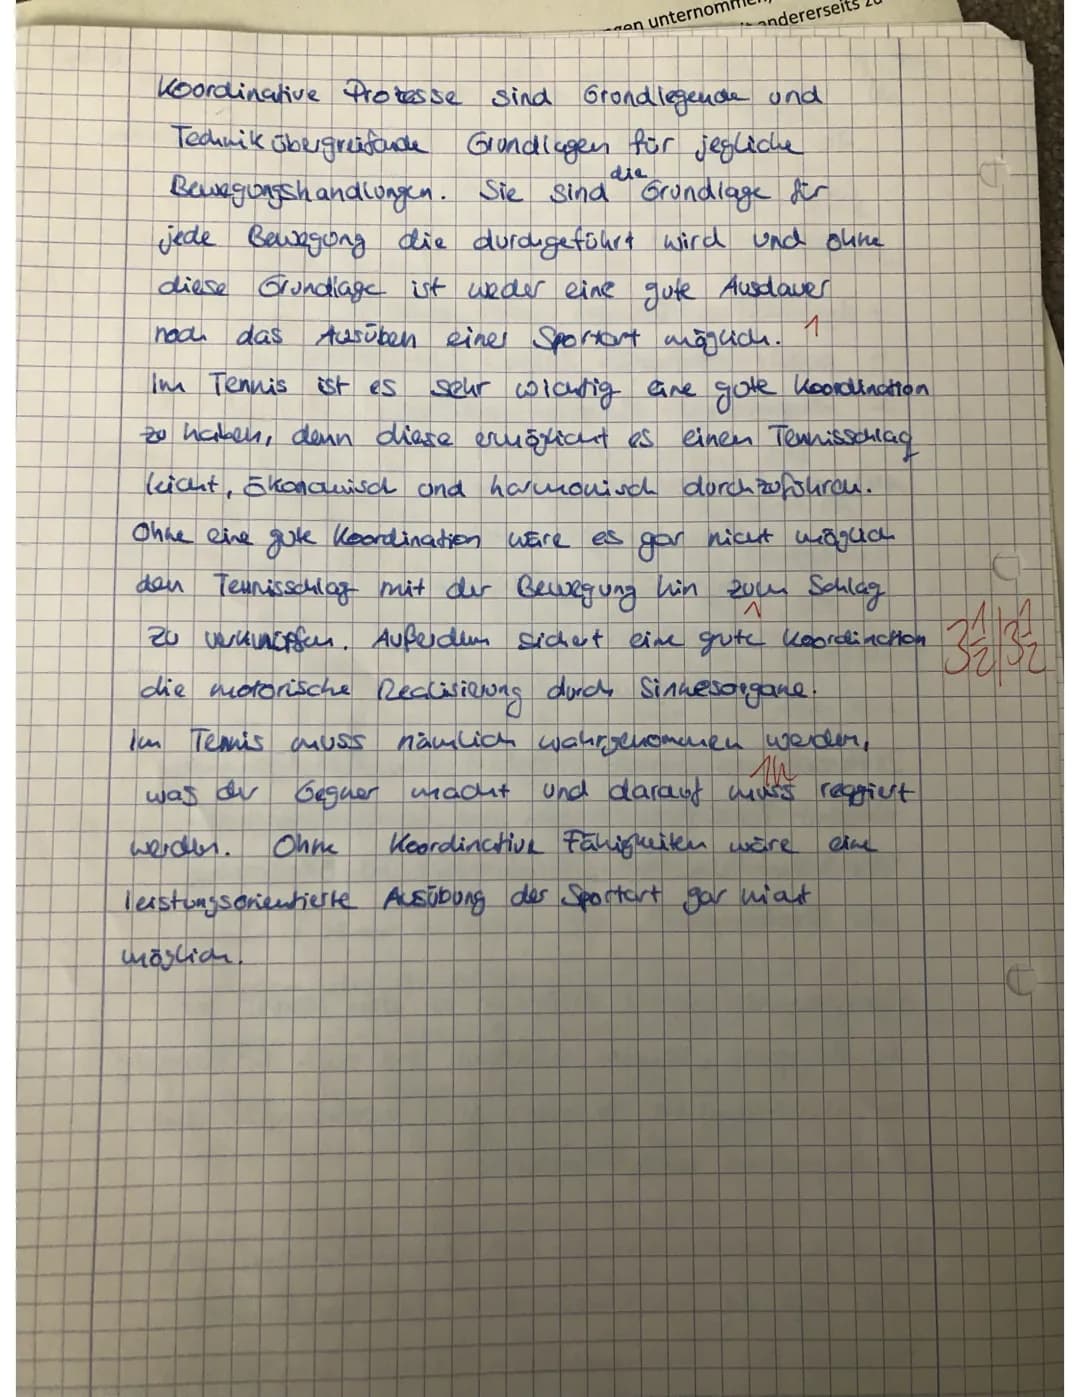 gen unternommen,
andererseits zu
Koordinative Prozesse sind Grundlegende und
Technik übergreifende Grundlagen für jegliche
Bewegungshandlungen. Sie sind die Grundlage für
jede Bewegung die durchgeführt wird und ohne
diese Grundlage ist weder eine gute Ausdauer
noch das Ausüben einer Sportart möglich. 1
Im Tennis ist es sehr wichtig eine gute Koordination
zu haben, denn diese ermöglicht es einen Tennisschlag
leicht, ökonomisch und harmonisch durchzuführen.
Ohne eine gute Koordination wäre es gar nicht möglich
den Tennisschlag mit der Bewegung hin zum Schlag
1
zu verknüpfen. Außerdem sichert eine gute Koordination 3 1/2 | 3 1/2
die motorische Realisierung durch Sinnesorgane.
Im Tennis muss nämlich wahrgenommen werden,
was der Gegner macht und darauf muss reagiert
werden. Ohne Koordinative Fähigkeiten wäre eine
leistungsorientierte Ausübung der Sportart gar nicht
möglich.